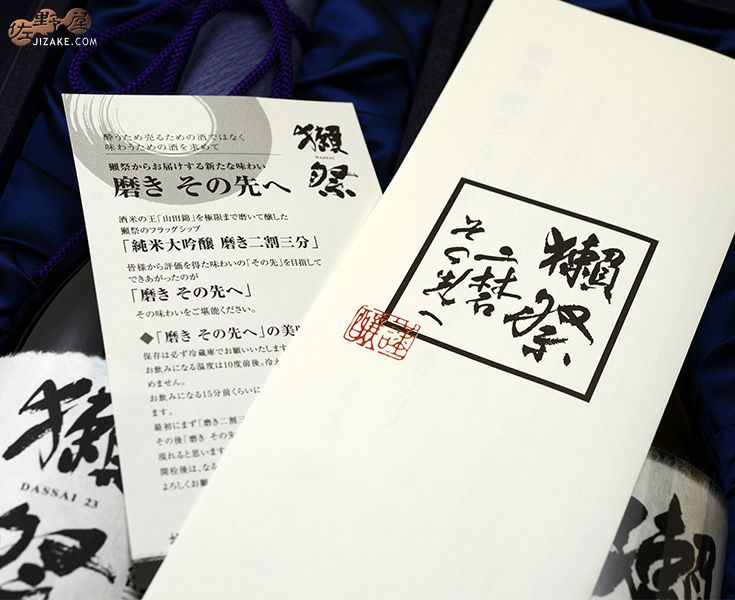 佐野屋
JIZAKE.COM
酔うため売るための酒ではなく
味わうための酒を求めて
獺祭
DASSAI
獺祭からお届けする新たな味わい
磨き その先へ
酒米の王「山田錦」を極限まで磨いて醸した
獺祭のフラッグシップ
「純米大吟醸 磨き二割三分」
皆様から評価を得た味わいの「その先」を目指して
できあがったのが
「磨き その先へ」
その味わいをご堪能ください。
◆「磨き その先へ」の美味
保存は必ず冷蔵庫でお願いいたします
お飲みになる温度は10度前後。冷え
めません。
お飲みになる15分前くらいに
ます。
最初にまず「磨き二割三
その後「磨き その先
現れると思います
開栓後は、なる
よろしくお願
獺祭
磨き
その先へ
獺祭
DASSAI 23
獺